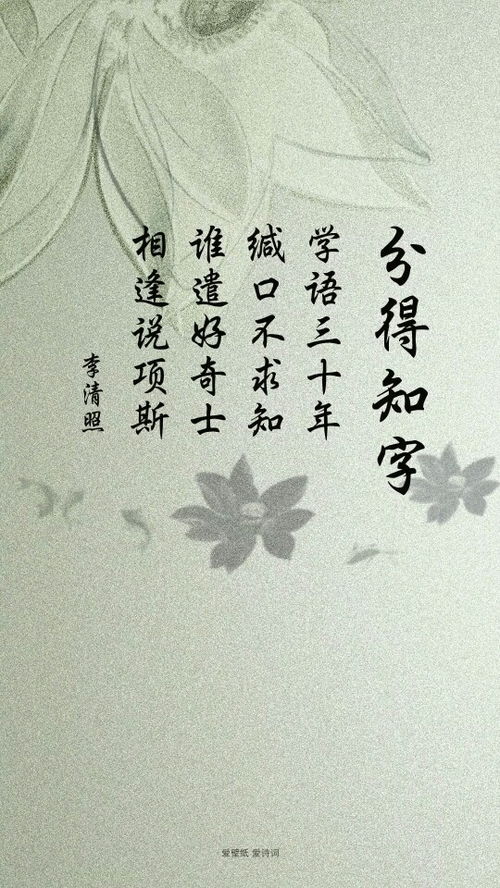 分得知字
学语三十年
缄口不求知
谁遣好奇士
相逢说项斯
李清照
爱壁纸 爱诗词